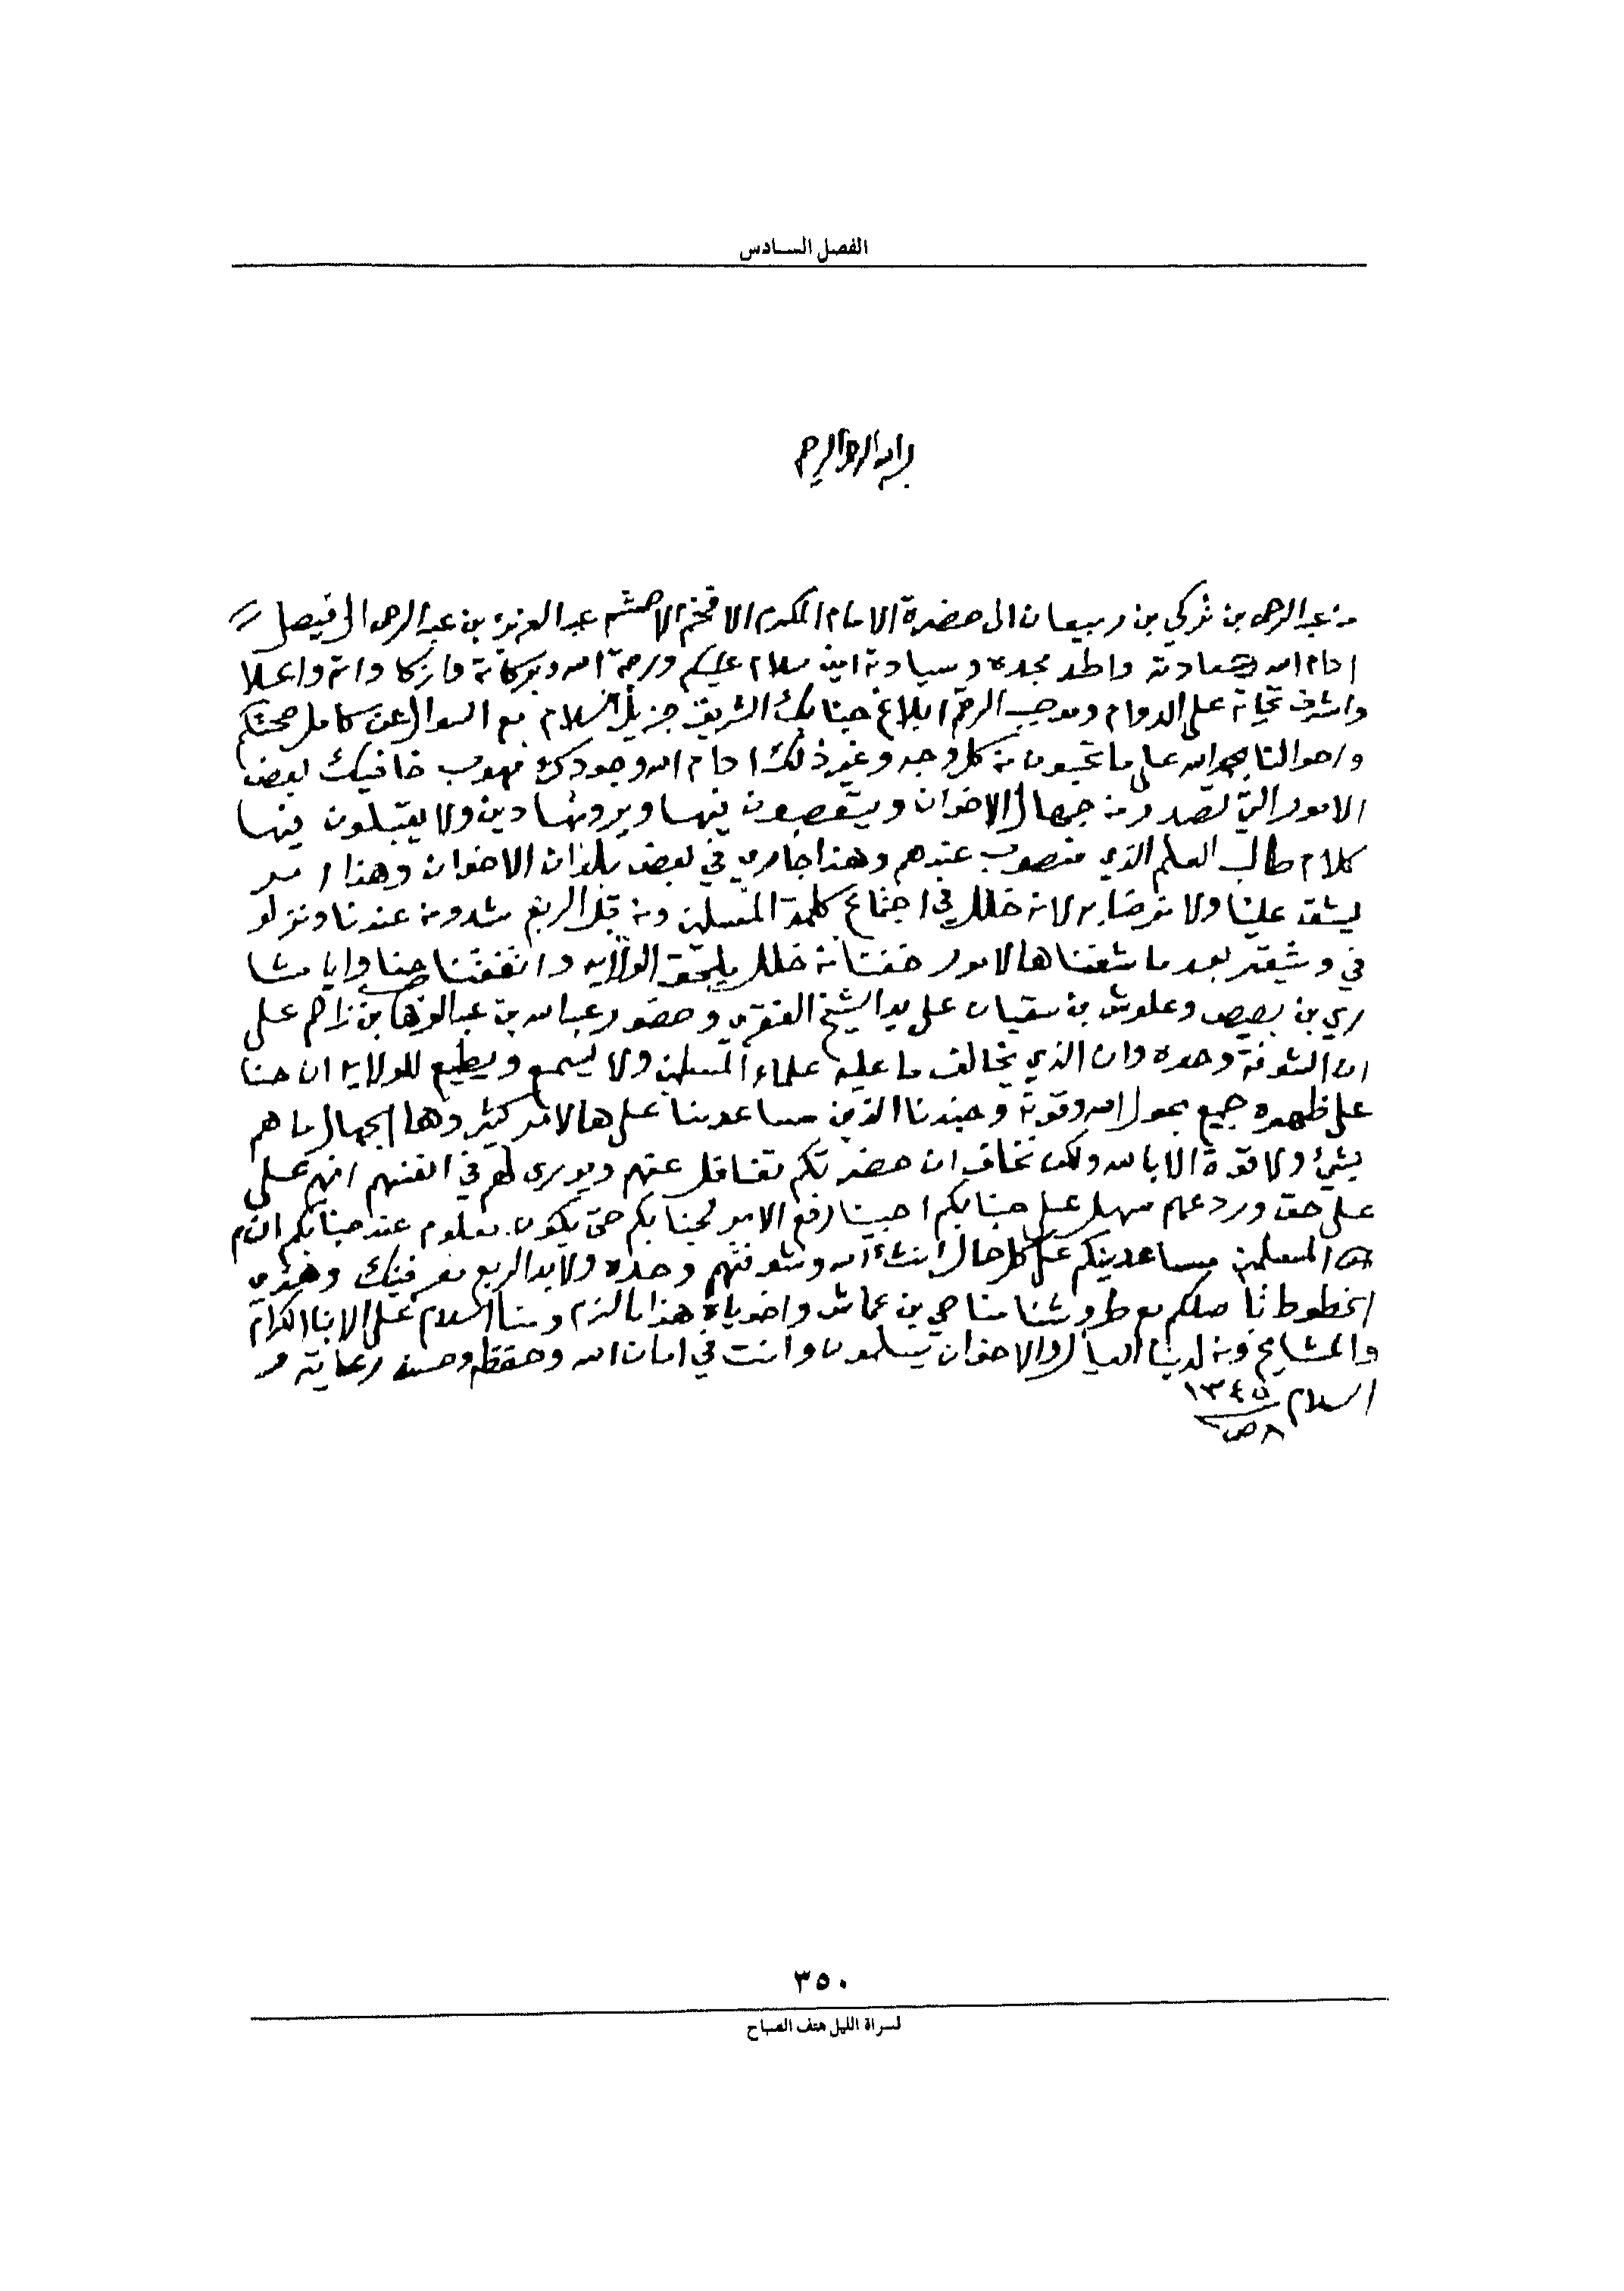 الفصل السادس
بسم الله الرحمن الرحيم
من عبدالرحمن بن تركي بن ربيعان الى حضرة الامام المكرم الافخم الاحشم عبدالعزيز بن عبدالرحمن ال فيصل
ادام الله سعادته واطد مجده وسيادته امين سلام عليكم ورحمة الله وبركاته وازكا واتم واعلا
واشرف تحياته على الدوام وموجب الرقم ابلاغ جنابك الشريف جزيل السلام مع السوال عن كامل صحتكم
واحوالنا بحمدالله على ما تحبون من كل وجه وغير ذلك ادام الله وجودك مهوب خافيك بعض
الامور التي تصدر من جهال الاخوان ويتعصبون فيها ويرونها دين ولا يقبلون فيها
كلام طالب العلم الذي منصوب عندهم وهذا جاري في بعض بلدان الاخوان وهذا امر
يشق علينا ولا نرضا به لانه خلل في اجتماع كلمة المسلمين ومن قبل الربع شدو من عندنا ونزلو
في وشيقر بعد ما شفنا هالامور خفنا من خلل يلحق الولايه واتفقنا حنا وايا مشا
ري بن بصيص وعلوش بن سقيان على يد الشيخ العنقري وحضور عبدالله بن عبدالوهاب بن زاحم على
ان الشوفة وحده وان الذي يخالف ما عليه علماء المسلمين ولا يسمع ويطيع للولايه ان حنا
على ظهره جميع بحول الله وقوته وجندنا الذين مساعديننا على هالامر كثير وها الجهال ما هم
بشيء ولا قوة الا بالله ولكن نخاف ان حضرتكم تغافل عنهم ويورى لهم في انفسهم انهم على
على حق وردعهم سهل على جنابكم احببنا رفع الامر لجنابكم حتى يكون معلوم عند جنابكم انهم
المسلمين مساعدينكم على كل حال انشاء الله وشوفتهم وحده ولابد الربع معرفينك وهذي
الخطوط تاصلكم مع طروشنا مناحي بن عماش واخوياه هذا ما لزم ومنا السلام على الابنا الكرام
والمشايخ ومن لدينا العيال والاخوان يسلمون وانت في امان الله وحفظه وحسن رعايته و
السلام ١٣٤٥
٨ ص
٣٥٠
لسراة الليل هتف الصباح